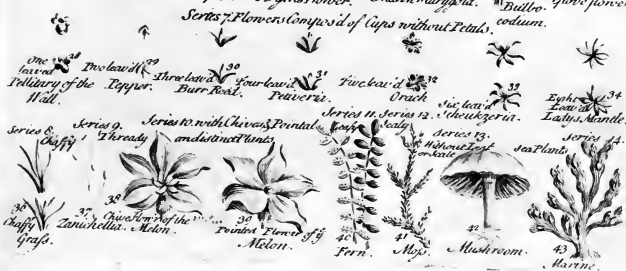 Bulbo-
codium.
Series 7. Flowers Compos'd of Cups without Petals.
28 29 30 31 32 33 34
One leav'd Pellitary of the Wall.
Two leav'd Pepper.
Three leav'd Burr Reed.
Four leav'd Petiveria.
Five leav'd Orach
Six leav'd Scheukzeria.
Eight Leav'd Ladys Mantle.
Series 8. Chaffy
Series 9. Thready
Series 10. with Chives & Pointal
on distinct Plants
Series 11. Leafy
Series 12. Scaly
Series 13.
Without Leaf
or Scale
Series 14.
Sea Plants
36 Chaffy Grass.
37 Zanichellia
38 Chive flow'r of the Melon.
39 Pointed Flower of ye Melon.
40 Fern.
41 Moss.
42 Mushroom.
43 Marine.